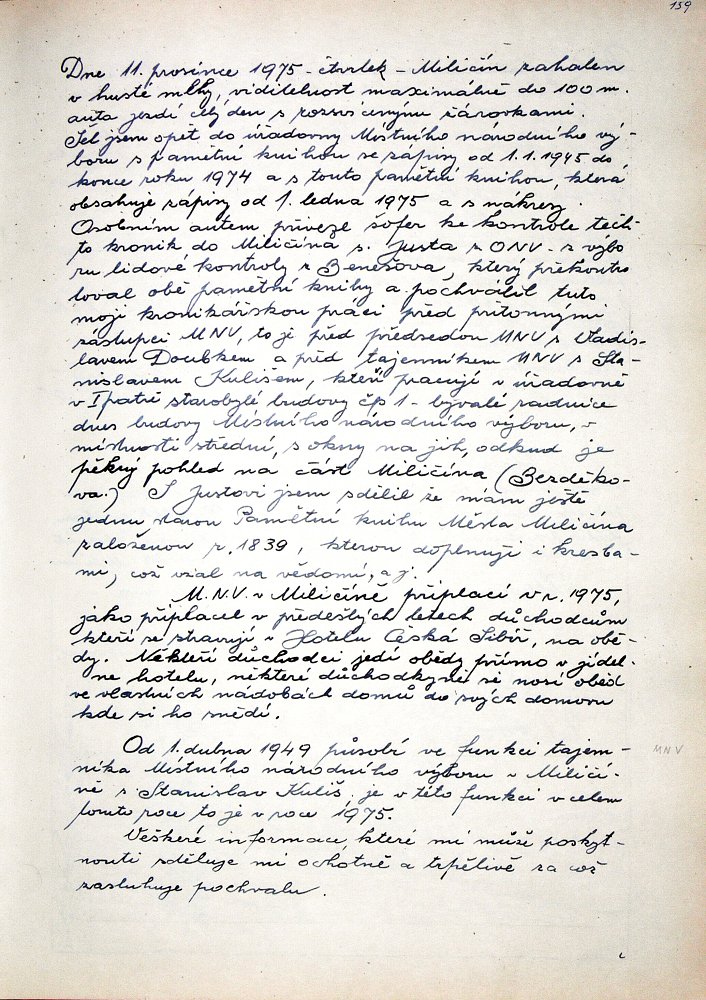 159
Dne 11. prosince 1975 - čtvrtek - Miličín zahalen
v husté mlhy, viditelnost maximálně do 100 m.
auta jezdí celý den s rozsvícenými žárovkami.
Šel jsem opět do úřadovny Místního národního vý-
boru s pamětní knihou se zápisy od 1.1.1945 do
konce roku 1974 a s touto pamětní knihou, která
obsahuje zápisy od 1. ledna 1975 a s nákresy.
Osobním autem přiveze šofer ke kontrole těch-
to kronik do Miličína s. Justa z ONV - z výbo
ru lidové kontroly z Benešova, který překontro
loval obě pamětní knihy a pochválil tuto
moji kronikářskou práci před přítomnými
zástupci MNV, to je před předsedou MNV s Vladis-
lavem Doubkem a před tajemníkem MNV s Sta-
nislavem Kulišem, kteří pracují v úřadovně
v I patře starobylé budovy čp 1 - bývalé radnice
dnes budovy Místního národního výboru, v
místnosti střední, s okny na jih, odkud je
pěkný pohled na část Miličína (Bezděko-
va.) S Justovi jsem sdělil že mám ještě
jednu starou Pamětní knihu Města Miličína
založenou r. 1839, kterou doplnuji i kresba-
mi, což vzal na vědomí, a j.
M.N.V. v Miličíně připlací v r. 1975,
jako připlacel v předešlých letech důchodcům
kteří se stravují v Hotelu Česká Sibiř, na obě-
dy. Někteří důchodci jedí obědy přímo v jídel-
ně hotelu, některé důchodkyně si nosí oběd
ve vlastních nádobách domů do svých domovů
kde si ho snědí.
Od 1. dubna 1949 působí ve funkci tajem-
MNV
níka Místního národního výboru v Miličí-
ně s. Stanislav Kuliš. je v této funkci v celém
tomto roce to je v roce 1975.
Veškeré informace, které mi může poskyt-
nouti sděluje mi ochotně a trpělivě za což
zasluhuje pochvalu.